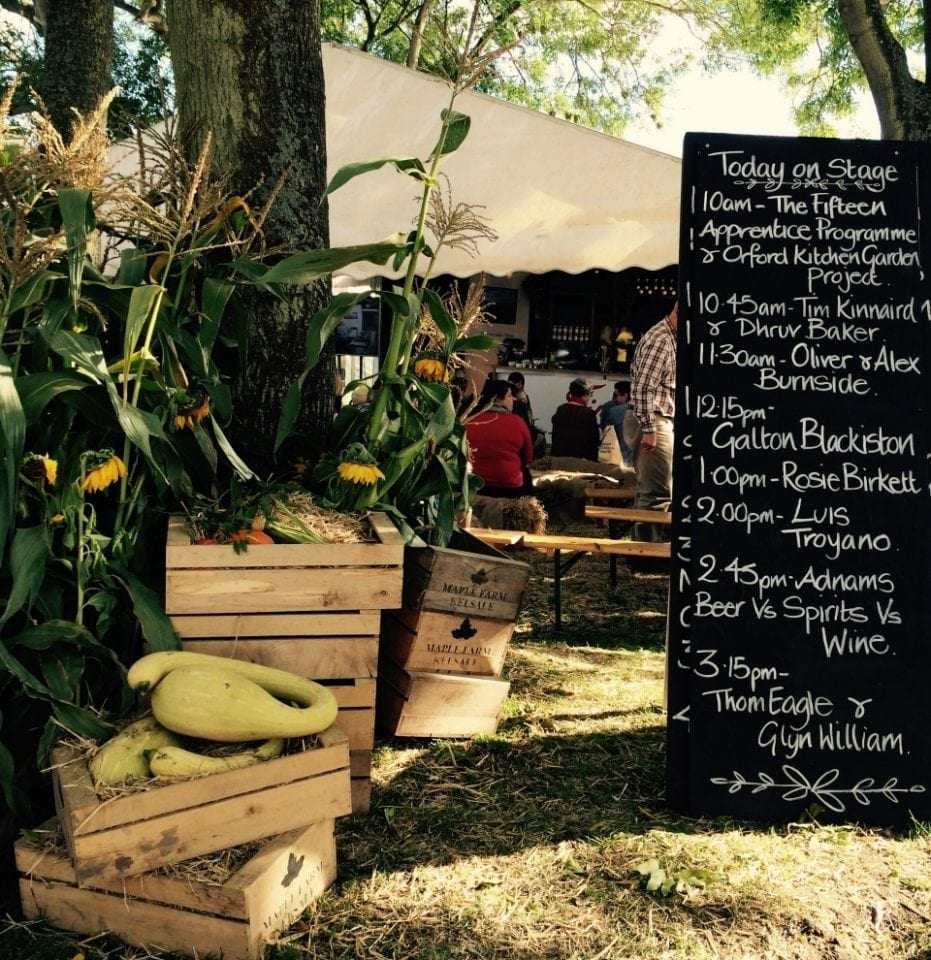 Today on Stage
10am - The Fifteen
Apprentice Programme
& Orford Kitchen Garden
Project.
10.45am - Tim Kinnaird
& Dhruv Baker
11:30am - Oliver & Alex
Burnside.
12:15pm -
Galton Blackiston
1:00pm - Rosie Birkett
2:00pm - Luis
Troyano.
2.45pm - Adnams
Beer Vs Spirits Vs
Wine.
3.15pm -
Thom Eagle &
Glyn William.
MAPLE FARM
KELSALE
MAPLE FARM
KELSALE